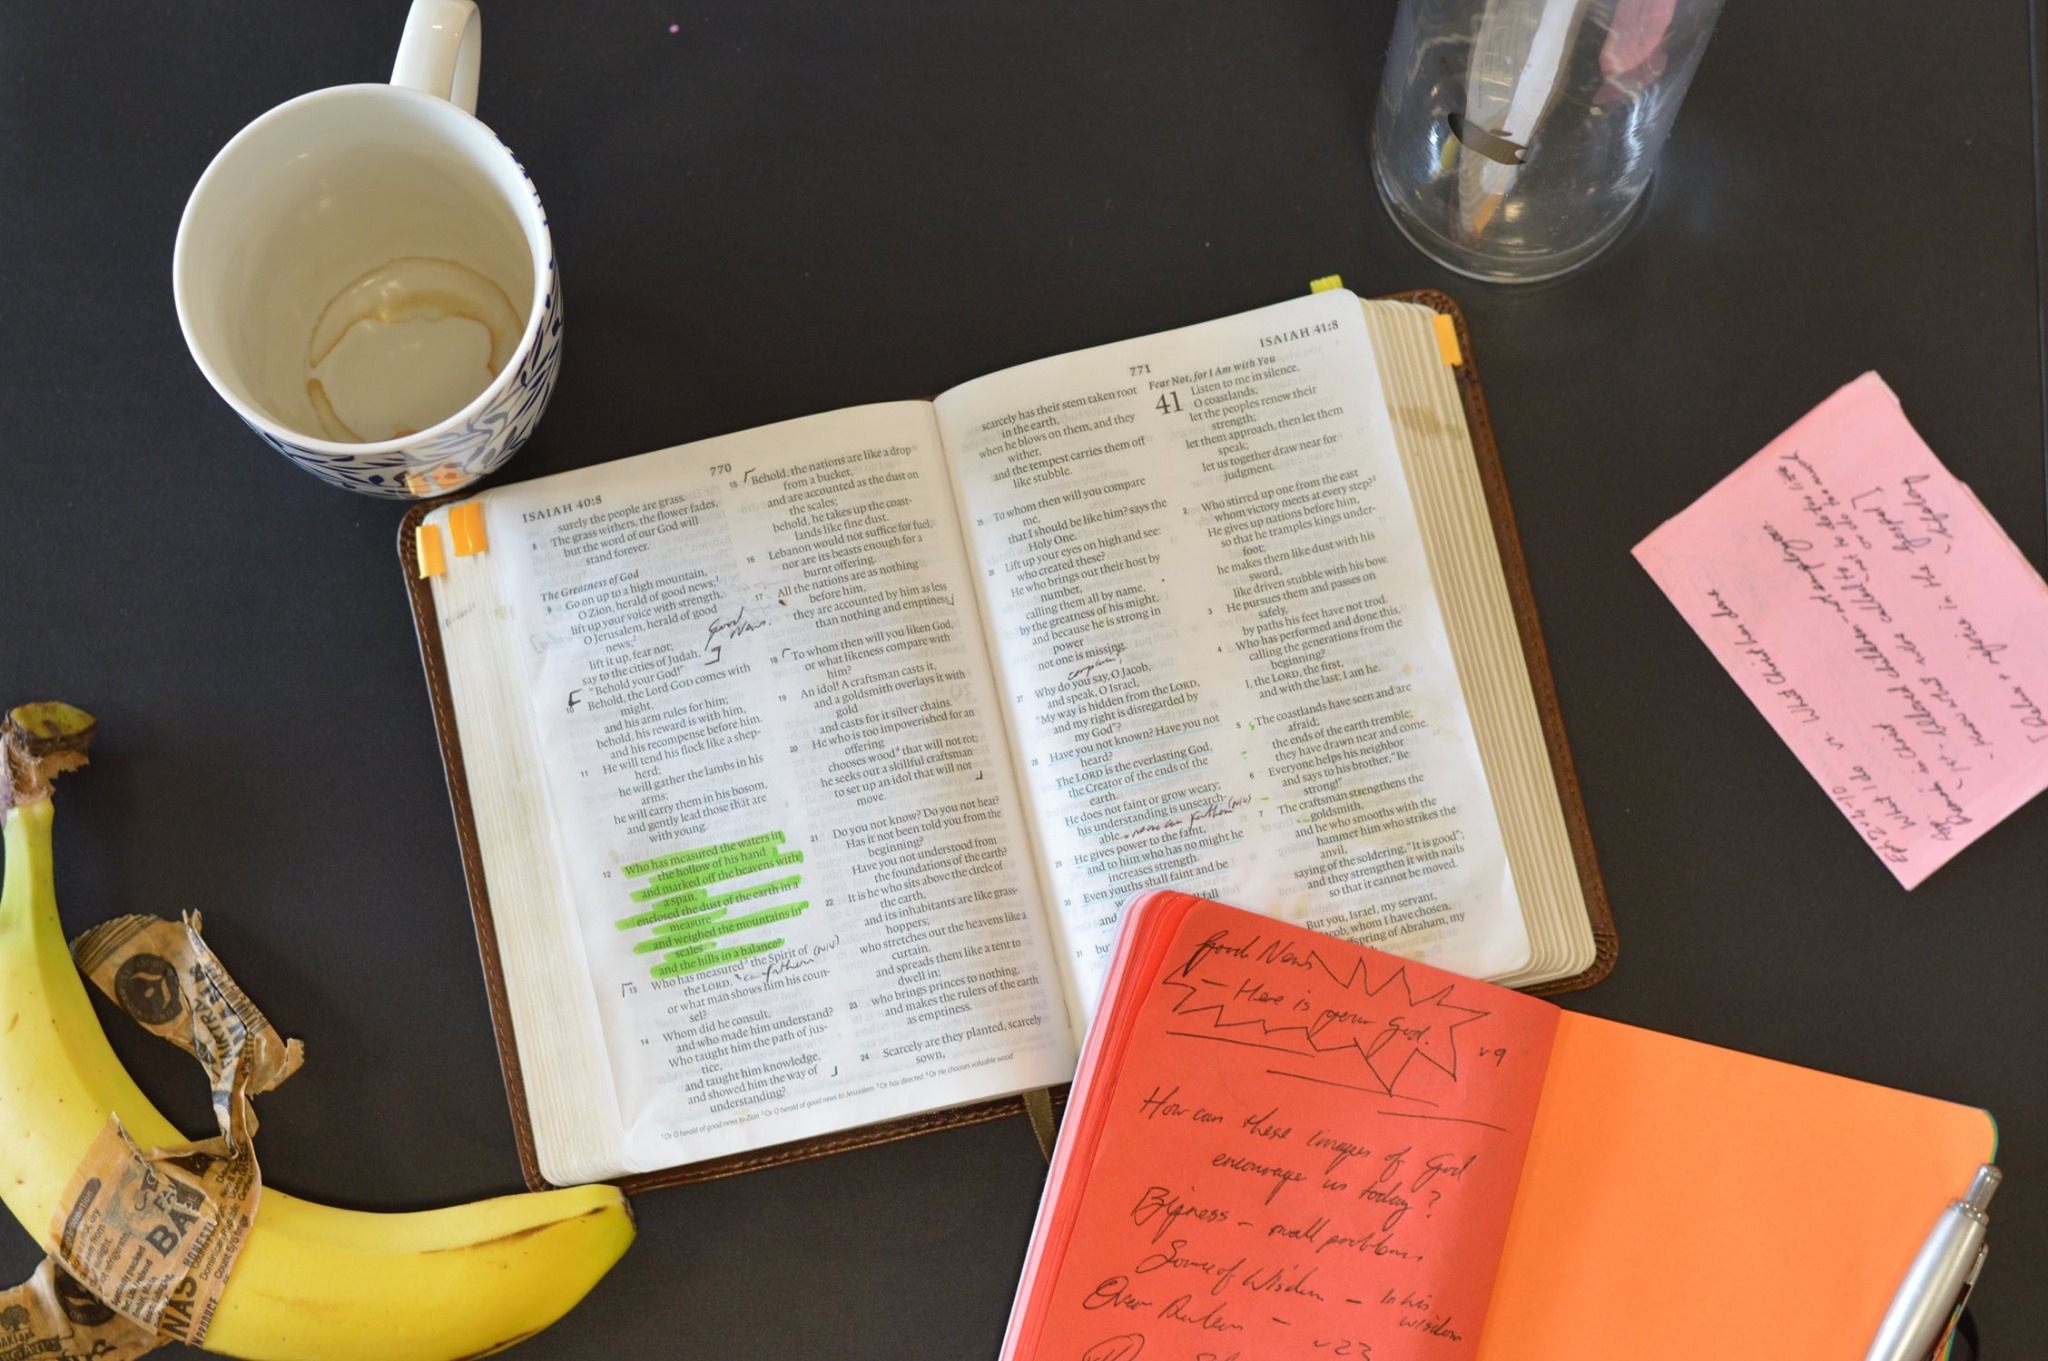 ISAIAH 40:8
770
surely the people are grass.
8 The grass withers, the flower fades,
but the word of our God will
stand forever.
The Greatness of God
9 Go on up to a high mountain,
O Zion, herald of good news;¹
lift up your voice with strength,
O Jerusalem, herald of good
news;²
lift it up, fear not;
say to the cities of Judah,
"Behold your God!"
Good
News.
10 Behold, the Lord GOD comes with
might,
and his arm rules for him;
behold, his reward is with him,
and his recompense before him.
11 He will tend his flock like a shep-
herd;
he will gather the lambs in his
arms;
he will carry them in his bosom,
and gently lead those that are
with young.
12 Who has measured the waters in
the hollow of his hand
and marked off the heavens with
a span,
enclosed the dust of the earth in a
measure
and weighed the mountains in
scales
and the hills in a balance?
13 Who has measured³ the Spirit of (NIV)
the LORD,
or what man shows him his coun-
sel?
14 Whom did he consult,
and who made him understand?
Who taught him the path of jus-
tice,
and taught him knowledge,
and showed him the way of
understanding?
15 Behold, the nations are like a drop
from a bucket,
and are accounted as the dust on
the scales;
behold, he takes up the coast-
lands like fine dust.
16 Lebanon would not suffice for fuel,
nor are its beasts enough for a
burnt offering.
17 All the nations are as nothing
before him,
they are accounted by him as less
than nothing and emptiness.
18 To whom then will you liken God,
or what likeness compare with
him?
19 An idol! A craftsman casts it,
and a goldsmith overlays it with
gold
and casts for it silver chains.
20 He who is too impoverished for an
offering
chooses wood⁴ that will not rot;
he seeks out a skillful craftsman
to set up an idol that will not
move.
21 Do you not know? Do you not hear?
Has it not been told you from the
beginning?
Have you not understood from
the foundations of the earth?
22 It is he who sits above the circle of
the earth,
and its inhabitants are like grass-
hoppers;
who stretches out the heavens like a
curtain,
and spreads them like a tent to
dwell in;
23 who brings princes to nothing,
and makes the rulers of the earth
as emptiness.
24 Scarcely are they planted, scarcely
sown,
¹ Or O herald of good news to Zion ² Or O herald of good news to Jerusalem ³ Or has directed ⁴ Or He chooses valuable wood
771
ISAIAH 41:8
scarcely has their stem taken root
in the earth,
when he blows on them, and they
wither,
and the tempest carries them off
like stubble.
25 To whom then will you compare
me,
that I should be like him? says the
Holy One.
26 Lift up your eyes on high and see:
who created these?
He who brings out their host by
number,
calling them all by name,
by the greatness of his might,
and because he is strong in
power
not one is missing.
complain
27 Why do you say, O Jacob,
and speak, O Israel,
"My way is hidden from the LORD,
and my right is disregarded by
my God"?
28 Have you not known? Have you not
heard?
The LORD is the everlasting God,
the Creator of the ends of the
earth.
He does not faint or grow weary;
his understanding is unsearch-
able. no one can fathom (NIV)
29 He gives power to the faint,
and to him who has no might he
increases strength.
30 Even youths shall faint and be
31
Fear Not, for I Am with You
41 Listen to me in silence,
O coastlands;
let the peoples renew their
strength;
let them approach, then let them
speak;
let us together draw near for
judgment.
2 Who stirred up one from the east
whom victory meets at every step?¹
He gives up nations before him,
so that he tramples kings under-
foot;
he makes them like dust with his
sword,
like driven stubble with his bow.
3 He pursues them and passes on
safely,
by paths his feet have not trod.
4 Who has performed and done this,
calling the generations from the
beginning?
I, the LORD, the first,
and with the last; I am he.
5 The coastlands have seen and are
afraid;
the ends of the earth tremble;
they have drawn near and come.
6 Everyone helps his neighbor
and says to his brother, "Be
strong!"
7 The craftsman strengthens the
goldsmith,
and he who smooths with the
hammer him who strikes the
anvil,
saying of the soldering, "It is good";
and they strengthen it with nails
so that it cannot be moved.
But you, Israel, my servant,
Jacob, whom I have chosen,
offspring of Abraham, my
Good News
– Here is your God.
v9
How can these images of God
encourage us today?
Bigness – small problems
Source of Wisdom – In his
wisdom
Over Rulers – v23
Eph 2:4-10
What I do vs. What Christ has done
BA
NAS
HONESTL
PRODUCE